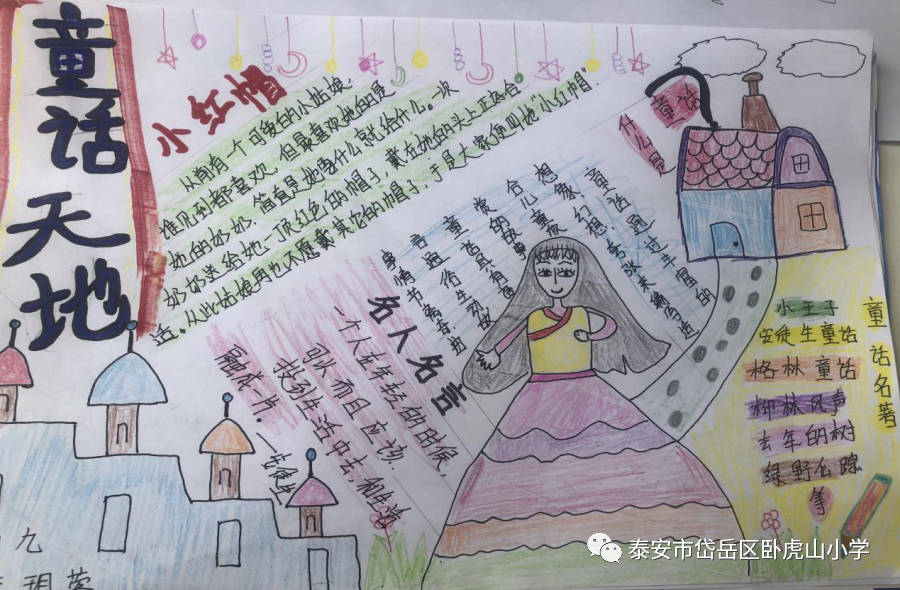 童话天地
小红帽
从前有一个可爱的小姑娘,
谁见到都喜欢,但最喜欢她的是
她的奶奶,简直是她要什么就给什么。一次
奶奶送给她一顶红色的帽子,戴在她的头上正好合
适。从此姑娘再也不愿戴其它的帽子,于是大家便叫她"小红帽".
什么是
童话
童话通过丰富的
名人名言
一个人在年轻的时候,
可以而且应该
投到生活中去,和生活
融成一片。
—安徒生
童话名著
小王子
安徒生童话
格林童话
柳林风声
去年的树
绿野仙踪
等
九
泰安市岱岳区卧虎山小学